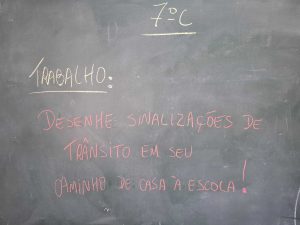 7ºC
TRABALHO:
DESENHE SINALIZAÇÕES DE
TRÂNSITO EM SEU
CAMINHO DE CASA À ESCOLA!